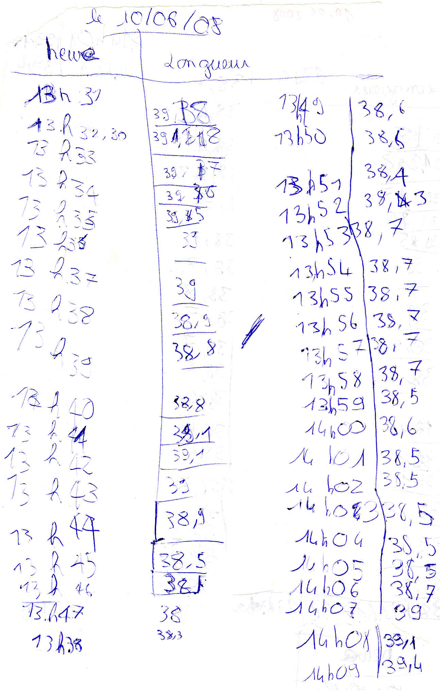 le 10/06/08
heure longueur
13h 31 39,38
13h 32,30
13h33
13h34
13h35
13h 39
13h37 39
13h38 38,9
13h39 38,8
13h40 38,8
13h 41 39,1
13h42 39,1
13h43 39
13h44 38,9
13h45 38,5
13h46 38,1
13h47 38
13h38 38,3
13h49 38,6
13h50 38,6
13h51 38,4
13h52
13h53 38,7
13h54 38,7
13h55 38,7
13h56 38,7
13h57 38,7
13h58 38,7
13h59 38,5
14h00 38,6
14h01 38,5
14h02 38,5
14h03 38,5
14h04 38,5
14h05 38,5
14h06 38,7
14h07 39
14h08 39,1
14h09 39,4